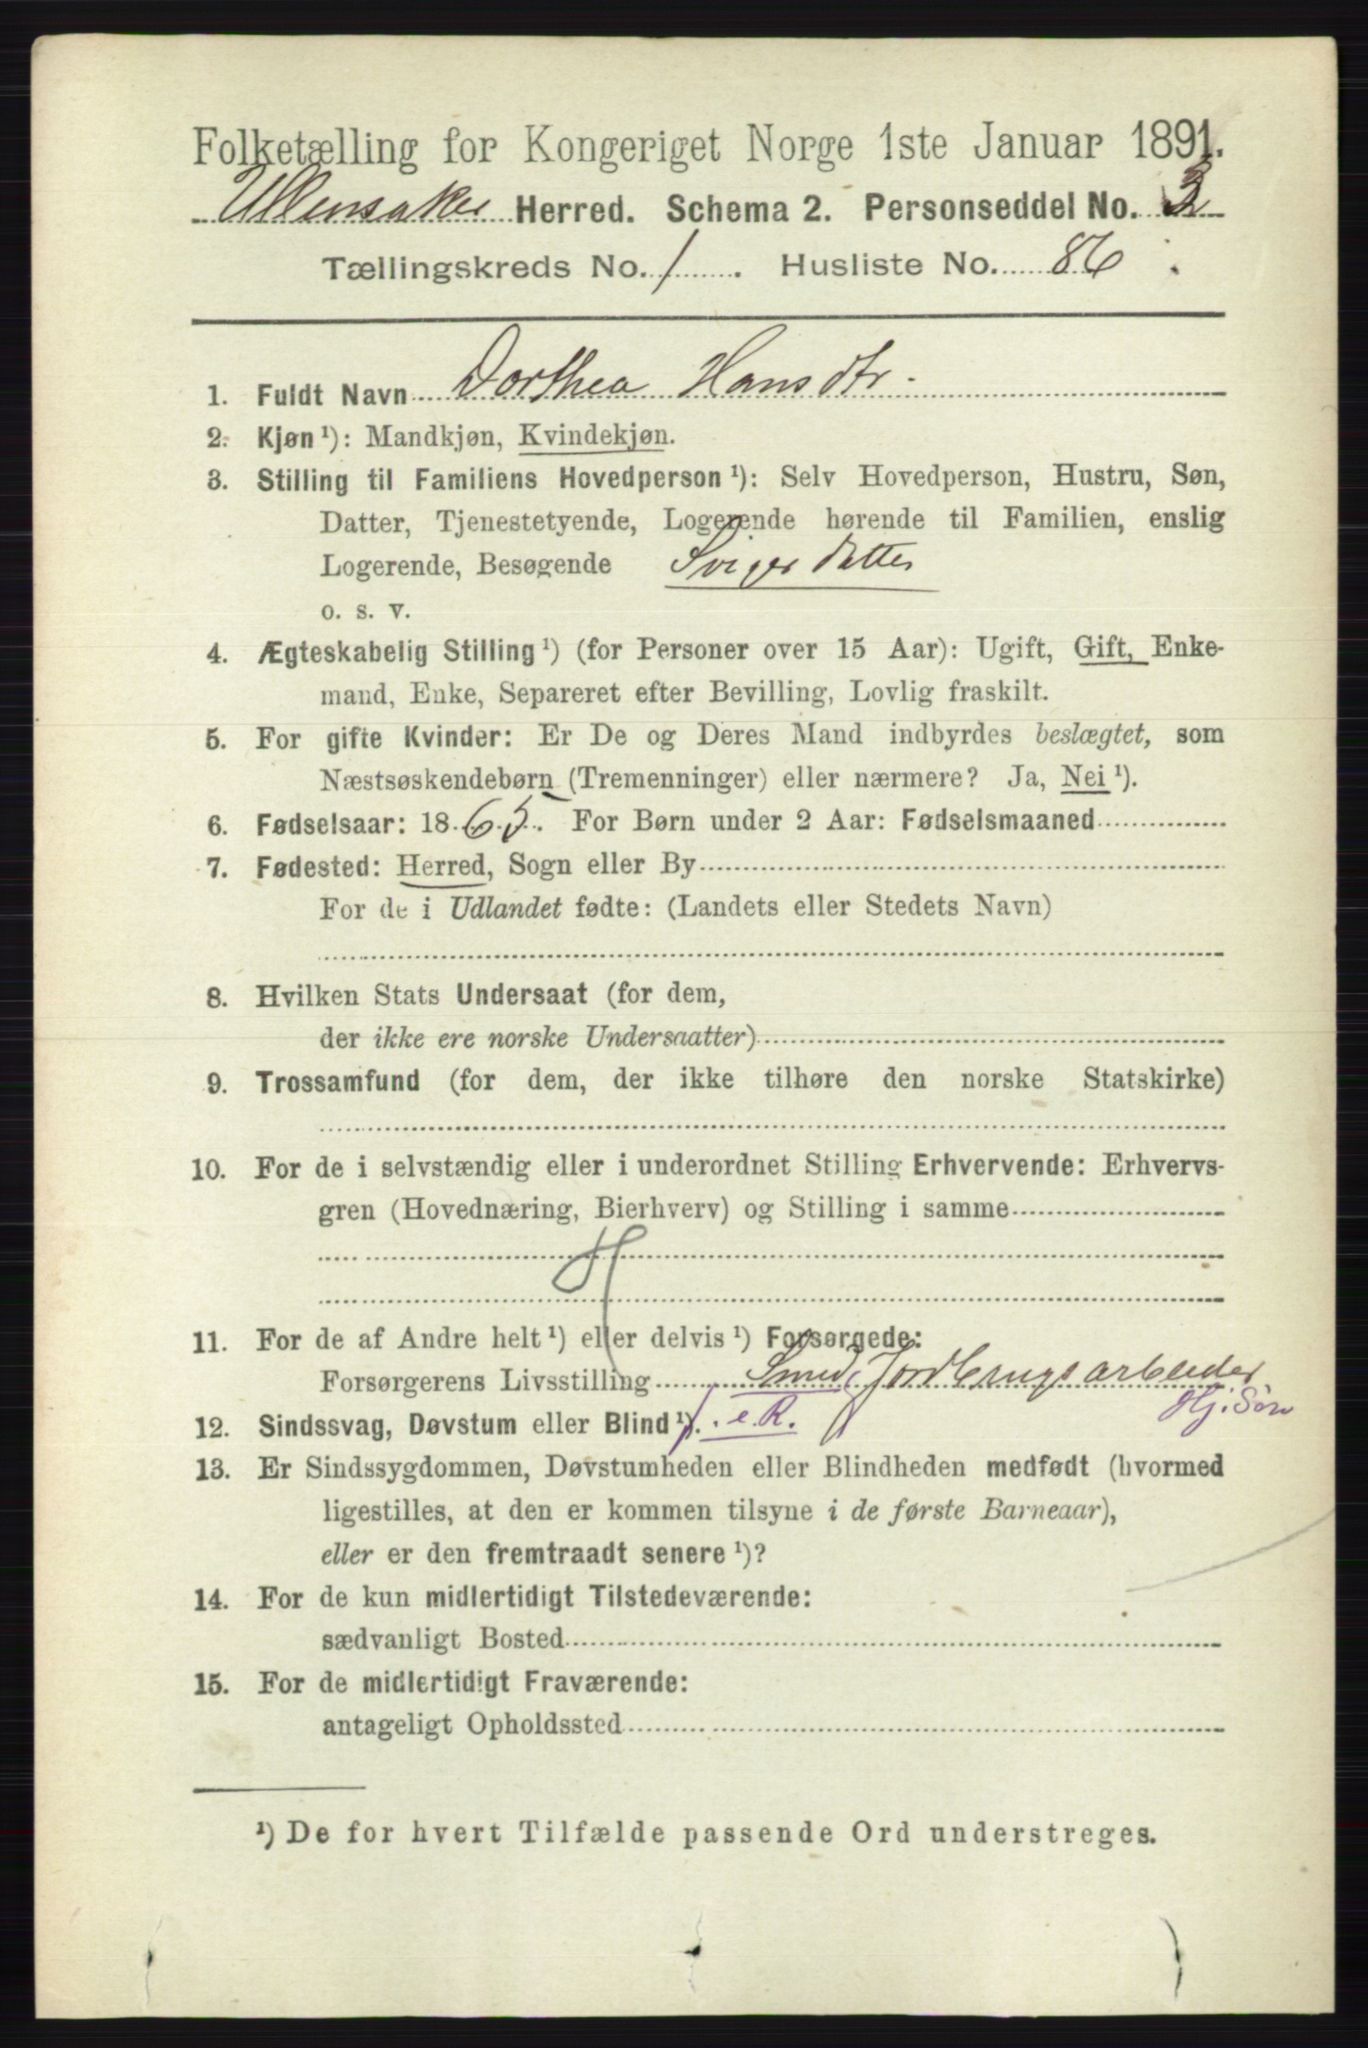 Folketælling for Kongeriget Norge 1ste Januar 1891.
Ullensaker Herred. Schema 2. Personseddel No. 3
Tællingskreds No. 1. Husliste No. 86.
1. Fuldt Navn Dorthea Hansdtr.
2. Kjøn ¹): Mandkjøn, Kvindekjøn.
3. Stilling til Familiens Hovedperson ¹): Selv Hovedperson, Hustru, Søn,
Datter, Tjenestetyende, Logerende hørende til Familien, enslig
Logerende, Besøgende Svigerdatter
o. s. v.
4. Ægteskabelig Stilling ¹) (for Personer over 15 Aar): Ugift, Gift, Enke-
mand, Enke, Separeret efter Bevilling, Lovlig fraskilt.
5. For gifte Kvinder: Er De og Deres Mand indbyrdes beslægtet, som
Næstsøskendebørn (Tremenninger) eller nærmere? Ja, Nei ¹).
6. Fødselsaar: 1865. For Børn under 2 Aar: Fødselsmaaned
7. Fødested: Herred, Sogn eller By
For de i Udlandet fødte: (Landets eller Stedets Navn)
8. Hvilken Stats Undersaat (for dem,
der ikke ere norske Undersaatter)
9. Trossamfund (for dem, der ikke tilhøre den norske Statskirke)
10. For de i selvstændig eller i underordnet Stilling Erhvervende: Erhvervs-
gren (Hovednæring, Bierhverv) og Stilling i samme
H
11. For de af Andre helt ¹) eller delvis ¹) Forsørgede:
Forsørgerens Livsstilling Smed, Jordbrugsarbeider
12. Sindssvag, Døvstum eller Blind ¹). e R. Hj. Søn
13. Er Sindssygdommen, Døvstumheden eller Blindheden medfødt (hvormed
ligestilles, at den er kommen tilsyne i de første Barneaar),
eller er den fremtraadt senere ¹)?
14. For de kun midlertidigt Tilstedeværende:
sædvanligt Bosted
15. For de midlertidigt Fraværende:
antageligt Opholdssted
¹) De for hvert Tilfælde passende Ord understreges.